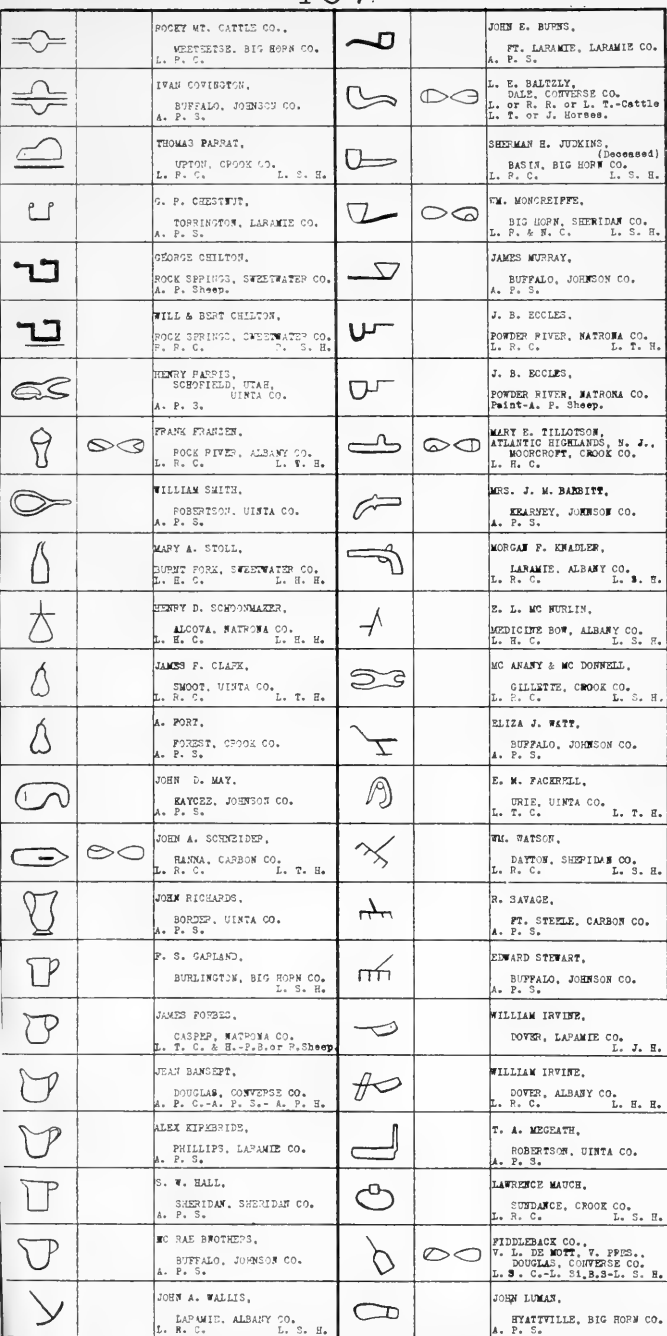 ROCKY MT. CATTLE CO.,
MEETEETSE, BIG HORN CO.
L. R. C.
IVAN COVINGTON,
BUFFALO, JOHNSON CO.
A. P. S.
THOMAS PARRAT,
UPTON, CROOK CO.
L. R. C. L. S. H.
G. P. CHESTNUT,
TORRINGTON, LARAMIE CO.
A. P. S.
GEORGE CHILTON,
ROCK SPRINGS, SWEETWATER CO.
A. P. Sheep.
WILL & BERT CHILTON,
ROCK SPRINGS, SWEETWATER CO.
R. R. C. R. S. H.
HENRY HARRIS,
SCHOFIELD, UTAH,
UINTA CO.
A. P. S.
FRANK FRANZEN,
ROCK RIVER, ALBANY CO.
L. R. C. L. T. H.
WILLIAM SMITH,
ROBERTSON, UINTA CO.
A. P. S.
MARY A. STOLL,
BURNT FORK, SWEETWATER CO.
L. H. C. L. H. H.
HENRY D. SCHOONMAKER,
ALCOVA, NATRONA CO.
L. H. C. L. H. H.
JAMES F. CLARK,
SMOOT, UINTA CO.
L. R. C. L. T. H.
A. PORT,
FOREST, CROOK CO.
A. P. S.
JOHN D. MAY,
KAYCEE, JOHNSON CO.
A. P. S.
JOHN A. SCHNEIDER,
HANNA, CARBON CO.
L. R. C. L. T. H.
JOHN RICHARDS,
BORDER, UINTA CO.
A. P. S.
F. S. GARLAND,
BURLINGTON, BIG HORN CO.
L. S. H.
JAMES FORBES,
CASPER, NATRONA CO.
L. T. C. & H.-P.B.or P.Sheep.
JEAN BANSEPT,
DOUGLAS, CONVERSE CO.
A. P. C.-A. P. S.- A. P. H.
ALEX KIRKBRIDE,
PHILLIPS, LARAMIE CO.
A. P. S.
S. W. HALL,
SHERIDAN, SHERIDAN CO.
A. P. S.
MC RAE BROTHERS,
BUFFALO, JOHNSON CO.
A. P. S.
JOHN A. WALLIS,
LARAMIE, ALBANY CO.
L. R. C. L. S. H.
JOHN E. BURNS,
FT. LARAMIE, LARAMIE CO.
A. P. S.
L. E. BALTZLY,
DALE, CONVERSE CO.
L. or R. R. or L. T.-Cattle
L. T. or J. Horses.
SHERMAN H. JUDKINS,
(Deceased)
BASIN, BIG HORN CO.
L. R. C. L. S. H.
WM. MONCREIFFE,
BIG HORN, SHERIDAN CO.
L. R. & N. C. L. S. H.
JAMES MURRAY,
BUFFALO, JOHNSON CO.
A. P. S.
J. B. ECCLES,
POWDER RIVER, NATRONA CO.
L. R. C. L. T. H.
J. B. ECCLES,
POWDER RIVER, NATRONA CO.
Paint-A. P. Sheep.
MARY E. TILLOTSON,
ATLANTIC HIGHLANDS, N. J.,
MOORCROFT, CROOK CO.
L. H. C.
MRS. J. M. BABBITT,
KEARNEY, JOHNSON CO.
A. P. S.
MORGAN F. KNADLER,
LARAMIE, ALBANY CO.
L. R. C. L. H.
E. L. MC NURLIN,
MEDICINE BOW, ALBANY CO.
L. H. C. L. S. H.
MC ANANY & MC DONNELL,
GILLETTE, CROOK CO.
L. R. C. L. S. H.
ELIZA J. WATT,
BUFFALO, JOHNSON CO.
A. P. S.
E. M. FACKRELL,
URIE, UINTA CO.
L. T. C. L. T. H.
WM. WATSON,
DAYTON, SHERIDAN CO.
L. R. C. L. S. H.
R. SAVAGE,
FT. STEELE, CARBON CO.
A. P. S.
EDWARD STEWART,
BUFFALO, JOHNSON CO.
A. P. S.
WILLIAM IRVINE,
DOVER, LARAMIE CO.
L. J. H.
WILLIAM IRVINE,
DOVER, ALBANY CO.
L. R. C. L. H. H.
T. A. MEGEATH,
ROBERTSON, UINTA CO.
A. P. S.
LAWRENCE MAUCH,
SUNDANCE, CROOK CO.
L. R. C. L. S. H.
FIDDLEBACK CO.,
V. L. DE MOTT, V. PRES.,
DOUGLAS, CONVERSE CO.
L. S. C.-L. Si.B.S-L. S. H.
JOHN LUMAN,
HYATTVILLE, BIG HORN CO.
A. P. S.